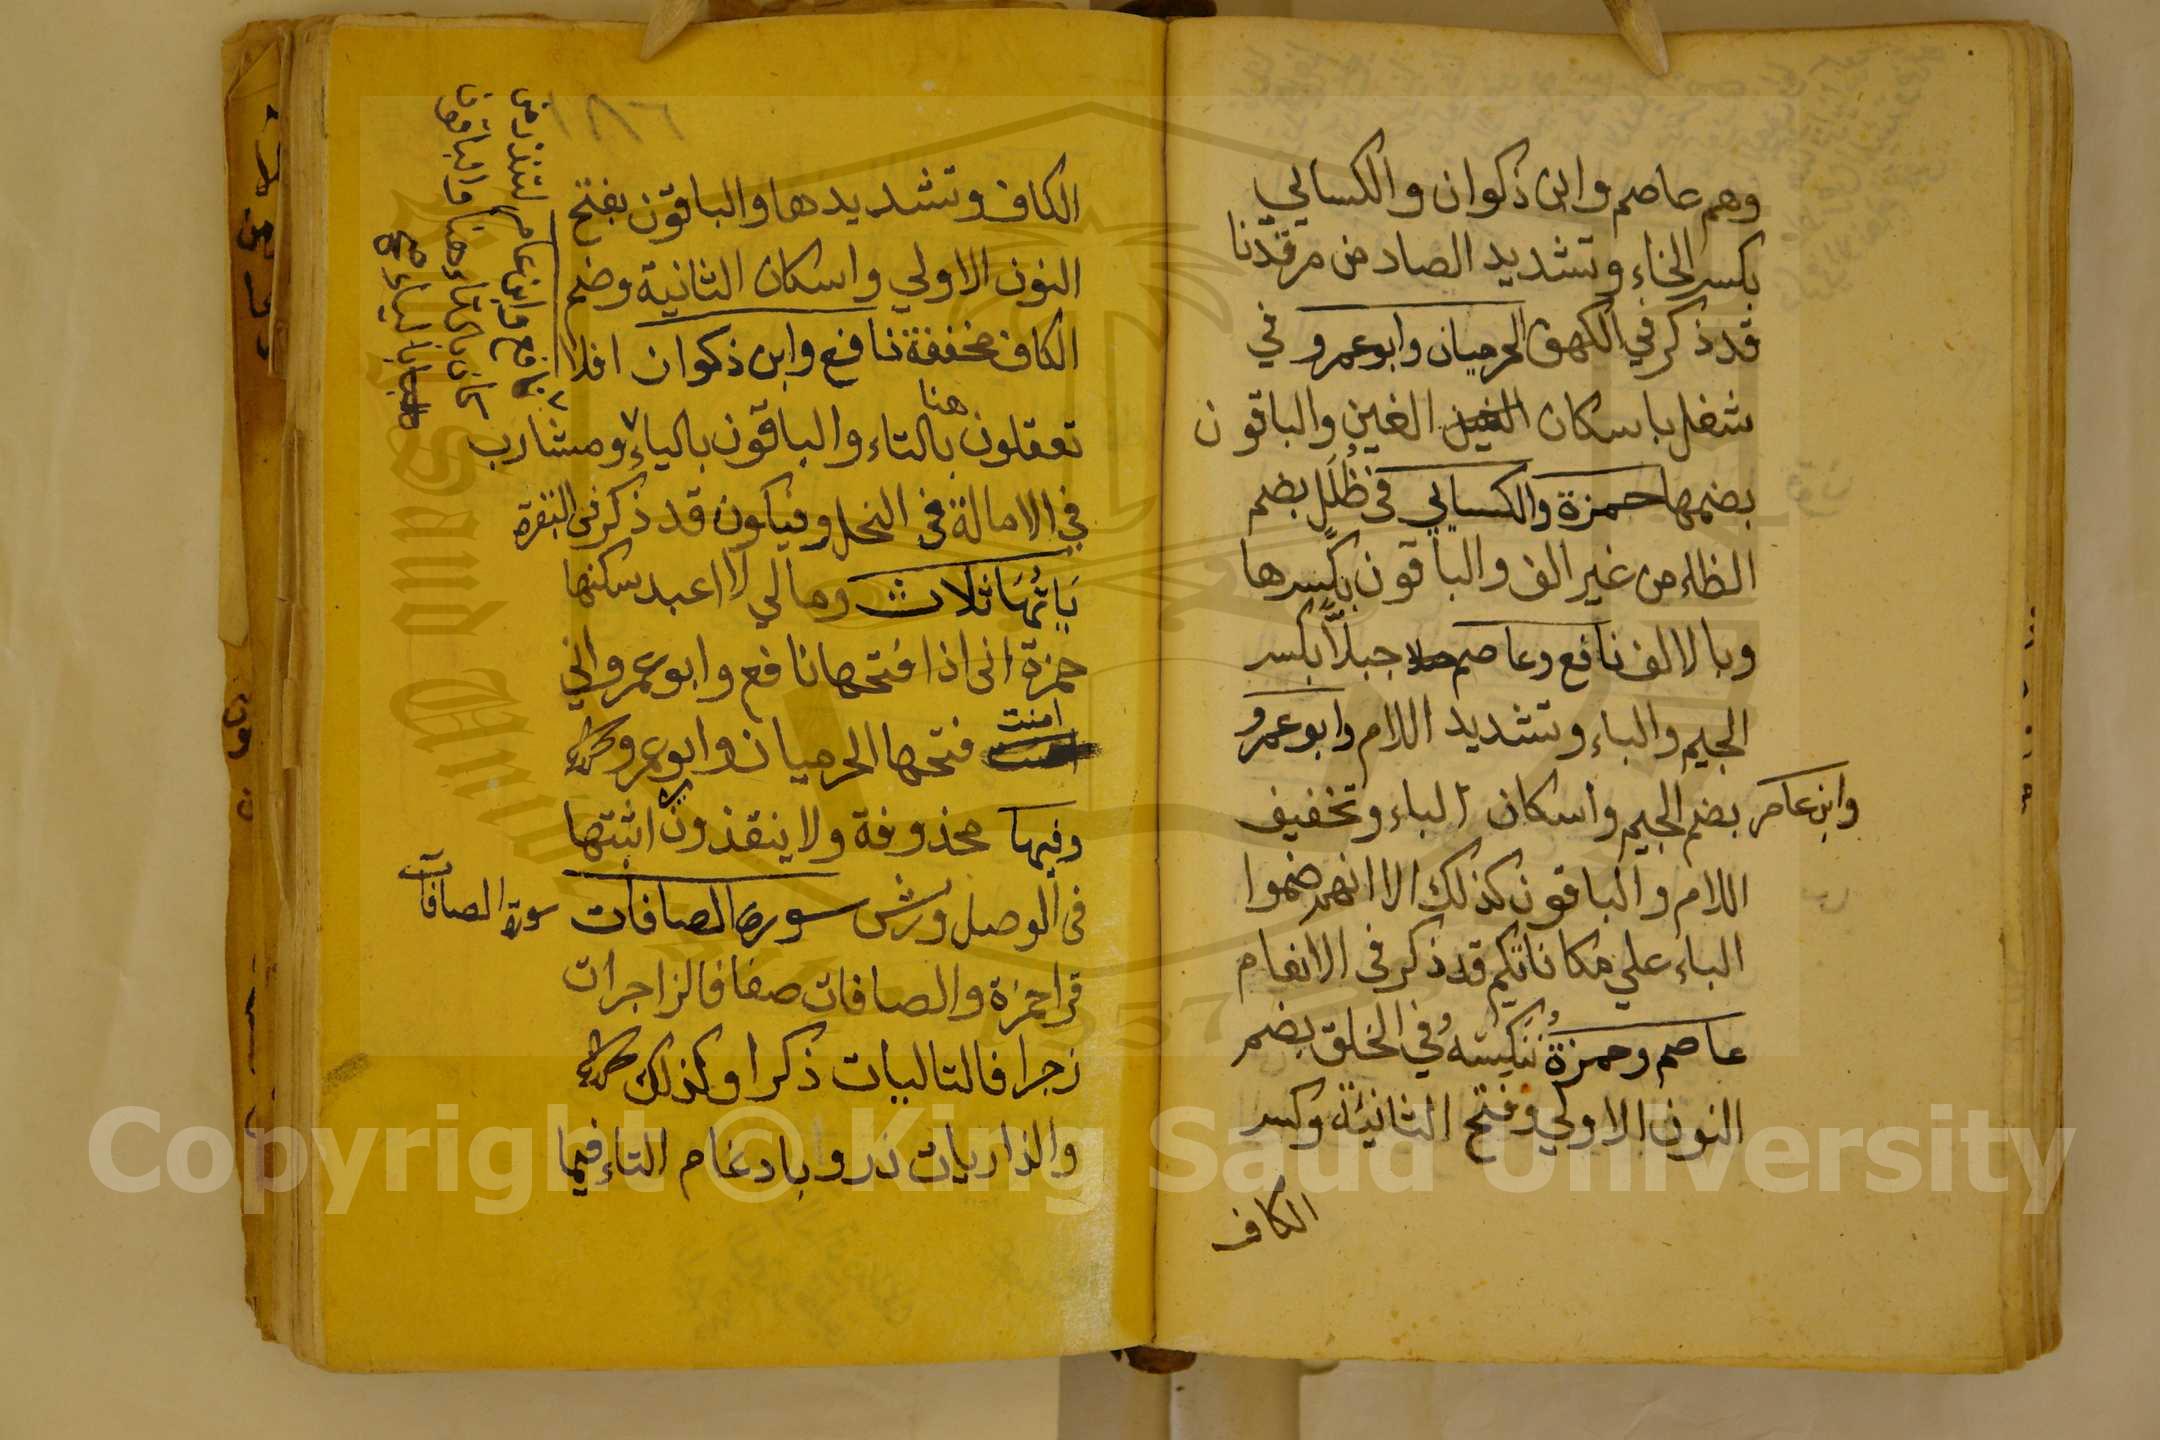 وهم عاصم وابن ذكوان والكسايي
بكسر الخاء وتشديد الصاد من مرقدنا
قد ذكر في الكهف الحرميان وابو عمرو في
شغل باسكان الغين والباقون
بضمها حمزة والكسايي في ظُلَلٍ بضم
الظاء من غير الف والباقون بكسرها
وبالالف نافع وعاصم جبلاًّ بكسر
الجيم والباء وتشديد اللام وابو عمرو
وابن عامر بضم الجيم واسكان الباء وتخفيف
اللام والباقون كذلك الا انهم ضموا
الباء علي مكاناتكم قد ذكر في الانعام
عاصم وحمزة نُنَكِّسْهُ في الخلق بضم
النون الاولي وفتح الثانية وكسر
الكاف
١٨٦
الكاف وتشديدها والباقون بفتح
النون الاولي واسكان الثانية وضم
الكاف مخففة نافع وابن ذكوان افلا
تعقلون هنا بالتاء والباقون بالياء ومشارب
في الامالة في النحل وفيكون قد ذكر في البقرة
يَاتُهَا ثلاث ومالي لا اعبد سكنها
حمزة انى اذا فتحها نافع وابو عمرو اني
امنت فتحها الحرميان وابو عمرو
وفيها محذوفة ولا ينقذون اثبتها
في الوصل ورش سورة الصافات
سورة الصافات
قرا حمزة والصافات صفا فالزاجرات
زجرا فالتاليات ذكرا وكذلك
والذاريات ذروا بادغام التاء فيما
لتنذر من
نافع وابن عامر
كان بالتاء هنا والباقون
بالياء صح
Copyright © King Saud University
King Saud University
1957